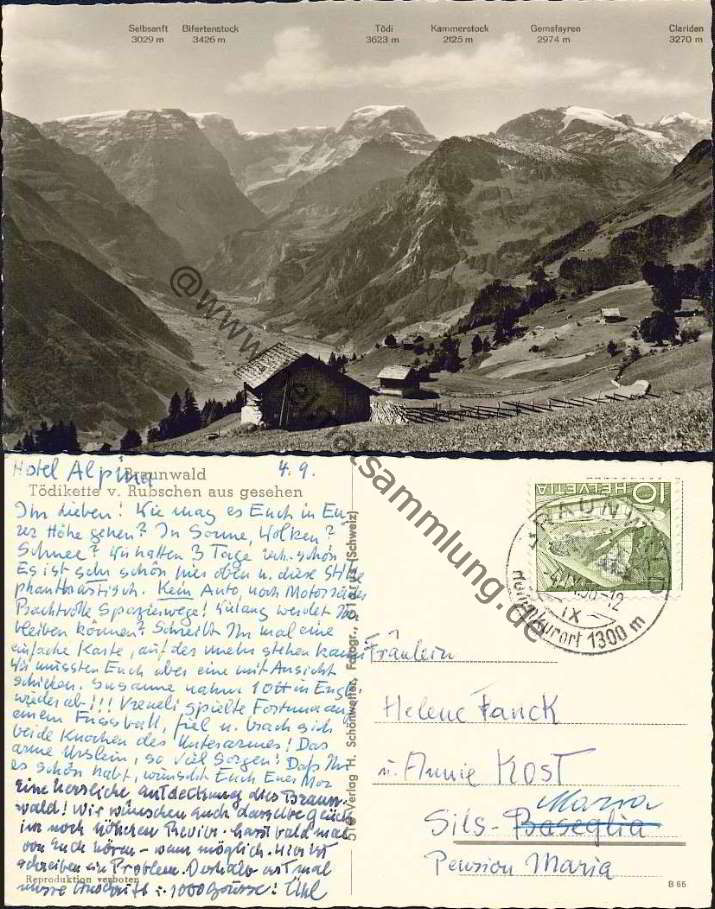 Selbsanft Bifertenstock Tödi Kammerstock Gemsfayren Clariden
3029 m 3426 m 3623 m 2125 m 2974 m 3270 m
@www.ansichtskartensammlung.de
Hotel Alpina 4.9.
Braunwald
Tödikette v. Rubschen aus gesehen
Ihr Lieben! Wie mag es Euch in Eu-
rer Höhe gehen? In Sonne, Wolken?
Schnee? Wir hatten 3 Tage sehr schön
Es ist sehr schön hier oben u. diese Stille
phantastisch. Kein Auto, noch Motorräder
Prachtvolle Spazierwege! Wielang werdet Ihr
bleiben können? Schreibt Ihr mal eine
einfache Karte, auf der mehr stehen kann
Wir mussten Euch aber eine mit Ansicht
schicken. Susanne nahm 10 in Engl.
wieder ab!!! Vreneli spielte
einem Fussball, fiel u. brach sich
beide Knochen des Unterarmes! Das
arme Urslein, so viel Sorgen! Dass Ihr
es schön habt, wünscht Euch Euer
Eine herrliche Entdeckung dies Braun-
wald! Wir wünschen euch dasselbe Glück
im noch höheren Revier. bald mal
von Euch hören - wenn möglich. Hier ist
schreiben ein Problem. Deshalb erst mal
unsere Unterschrift u. 1000 Grüsse!
Reproduktion verboten
Verlag H. Schönwetter, Fotogr., Glarus (Schweiz)
HELVETIA 10
BRAUNWALD
IX
Höhenkurort 1300 m
Fräulein
Helene Fanck
u. Annie Kost
Maria
Sils-Baseglia
Pension Maria
B 66